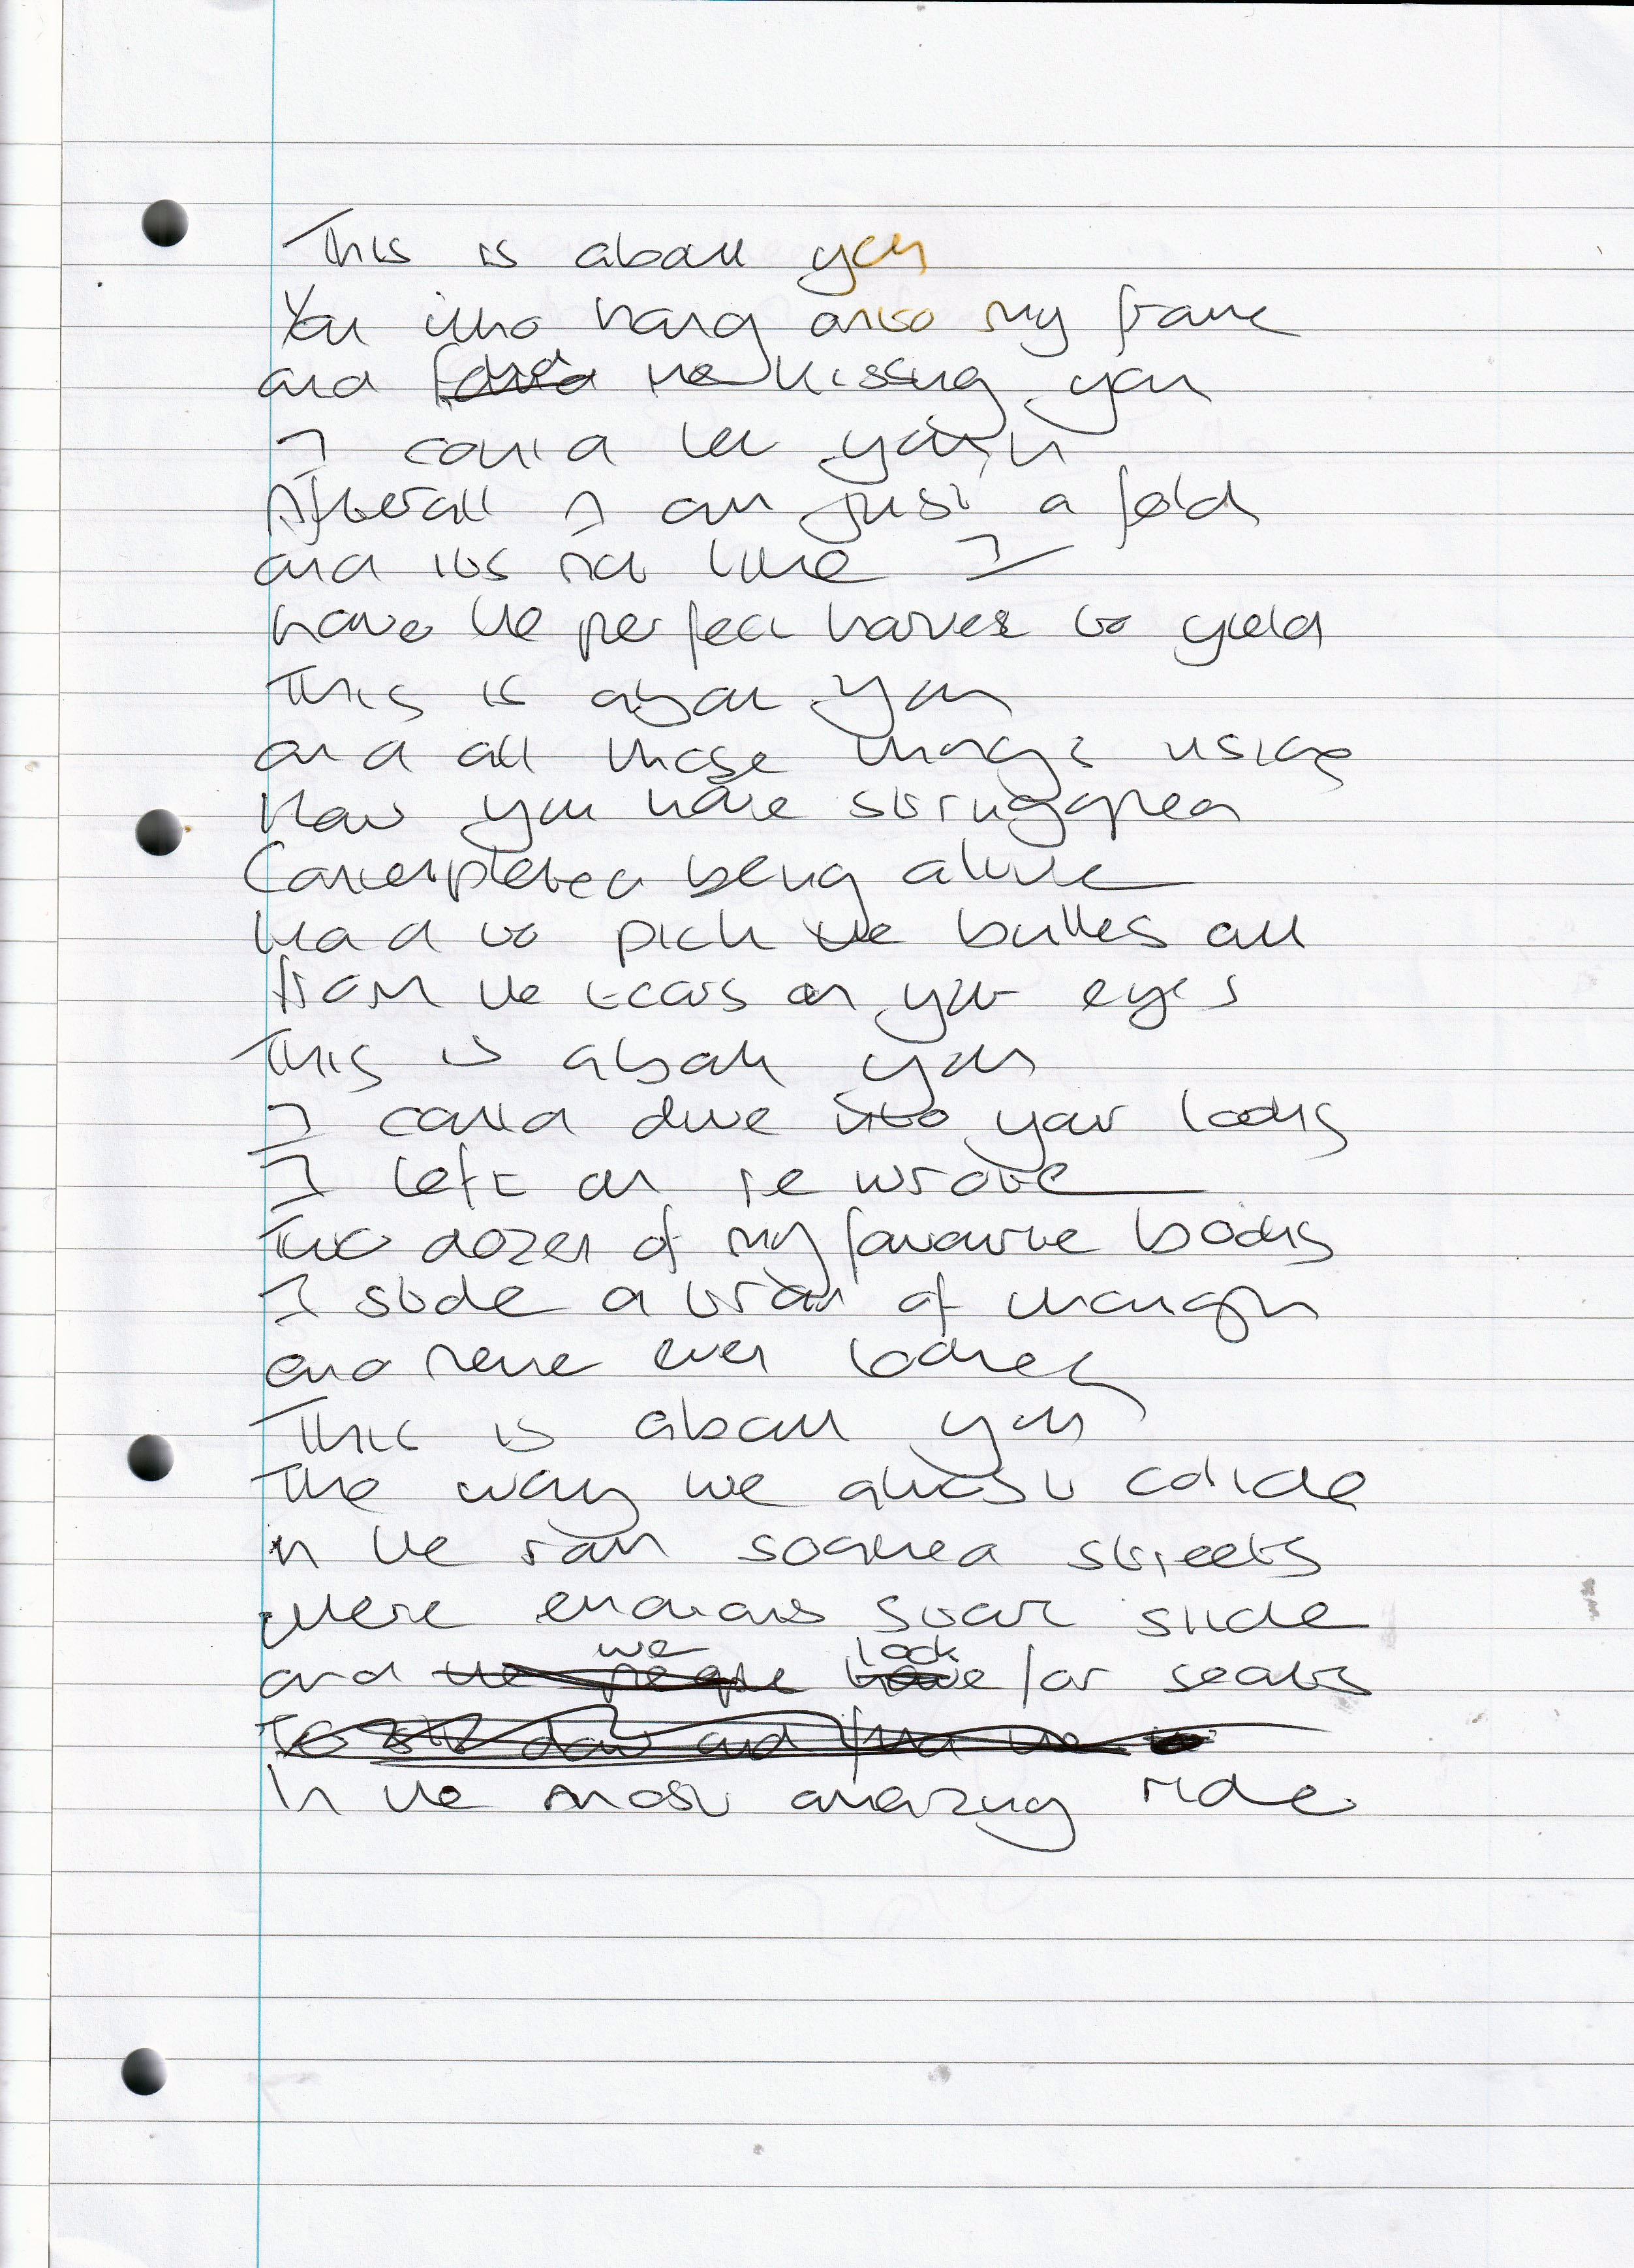 This is about you
You who hang onto my frame
and found me kissing you
I could let you in
Afterall I am just a field
and its not like I
have the perfect harvest to yield
This is about you
and all those things inside
How you have struggled
Contemplated being alive
had to pick the bullets out
from the tears in your eyes
This is about you
I could dive into your looks
I left an re wrote
Two dozen of my favourite books
I stole a train of thought
and never even looked
This is about you
The way we almost collide
in the rain soaked streets
where endings start slide
and we look for seats
To sit down and find the
In the most amazing ride